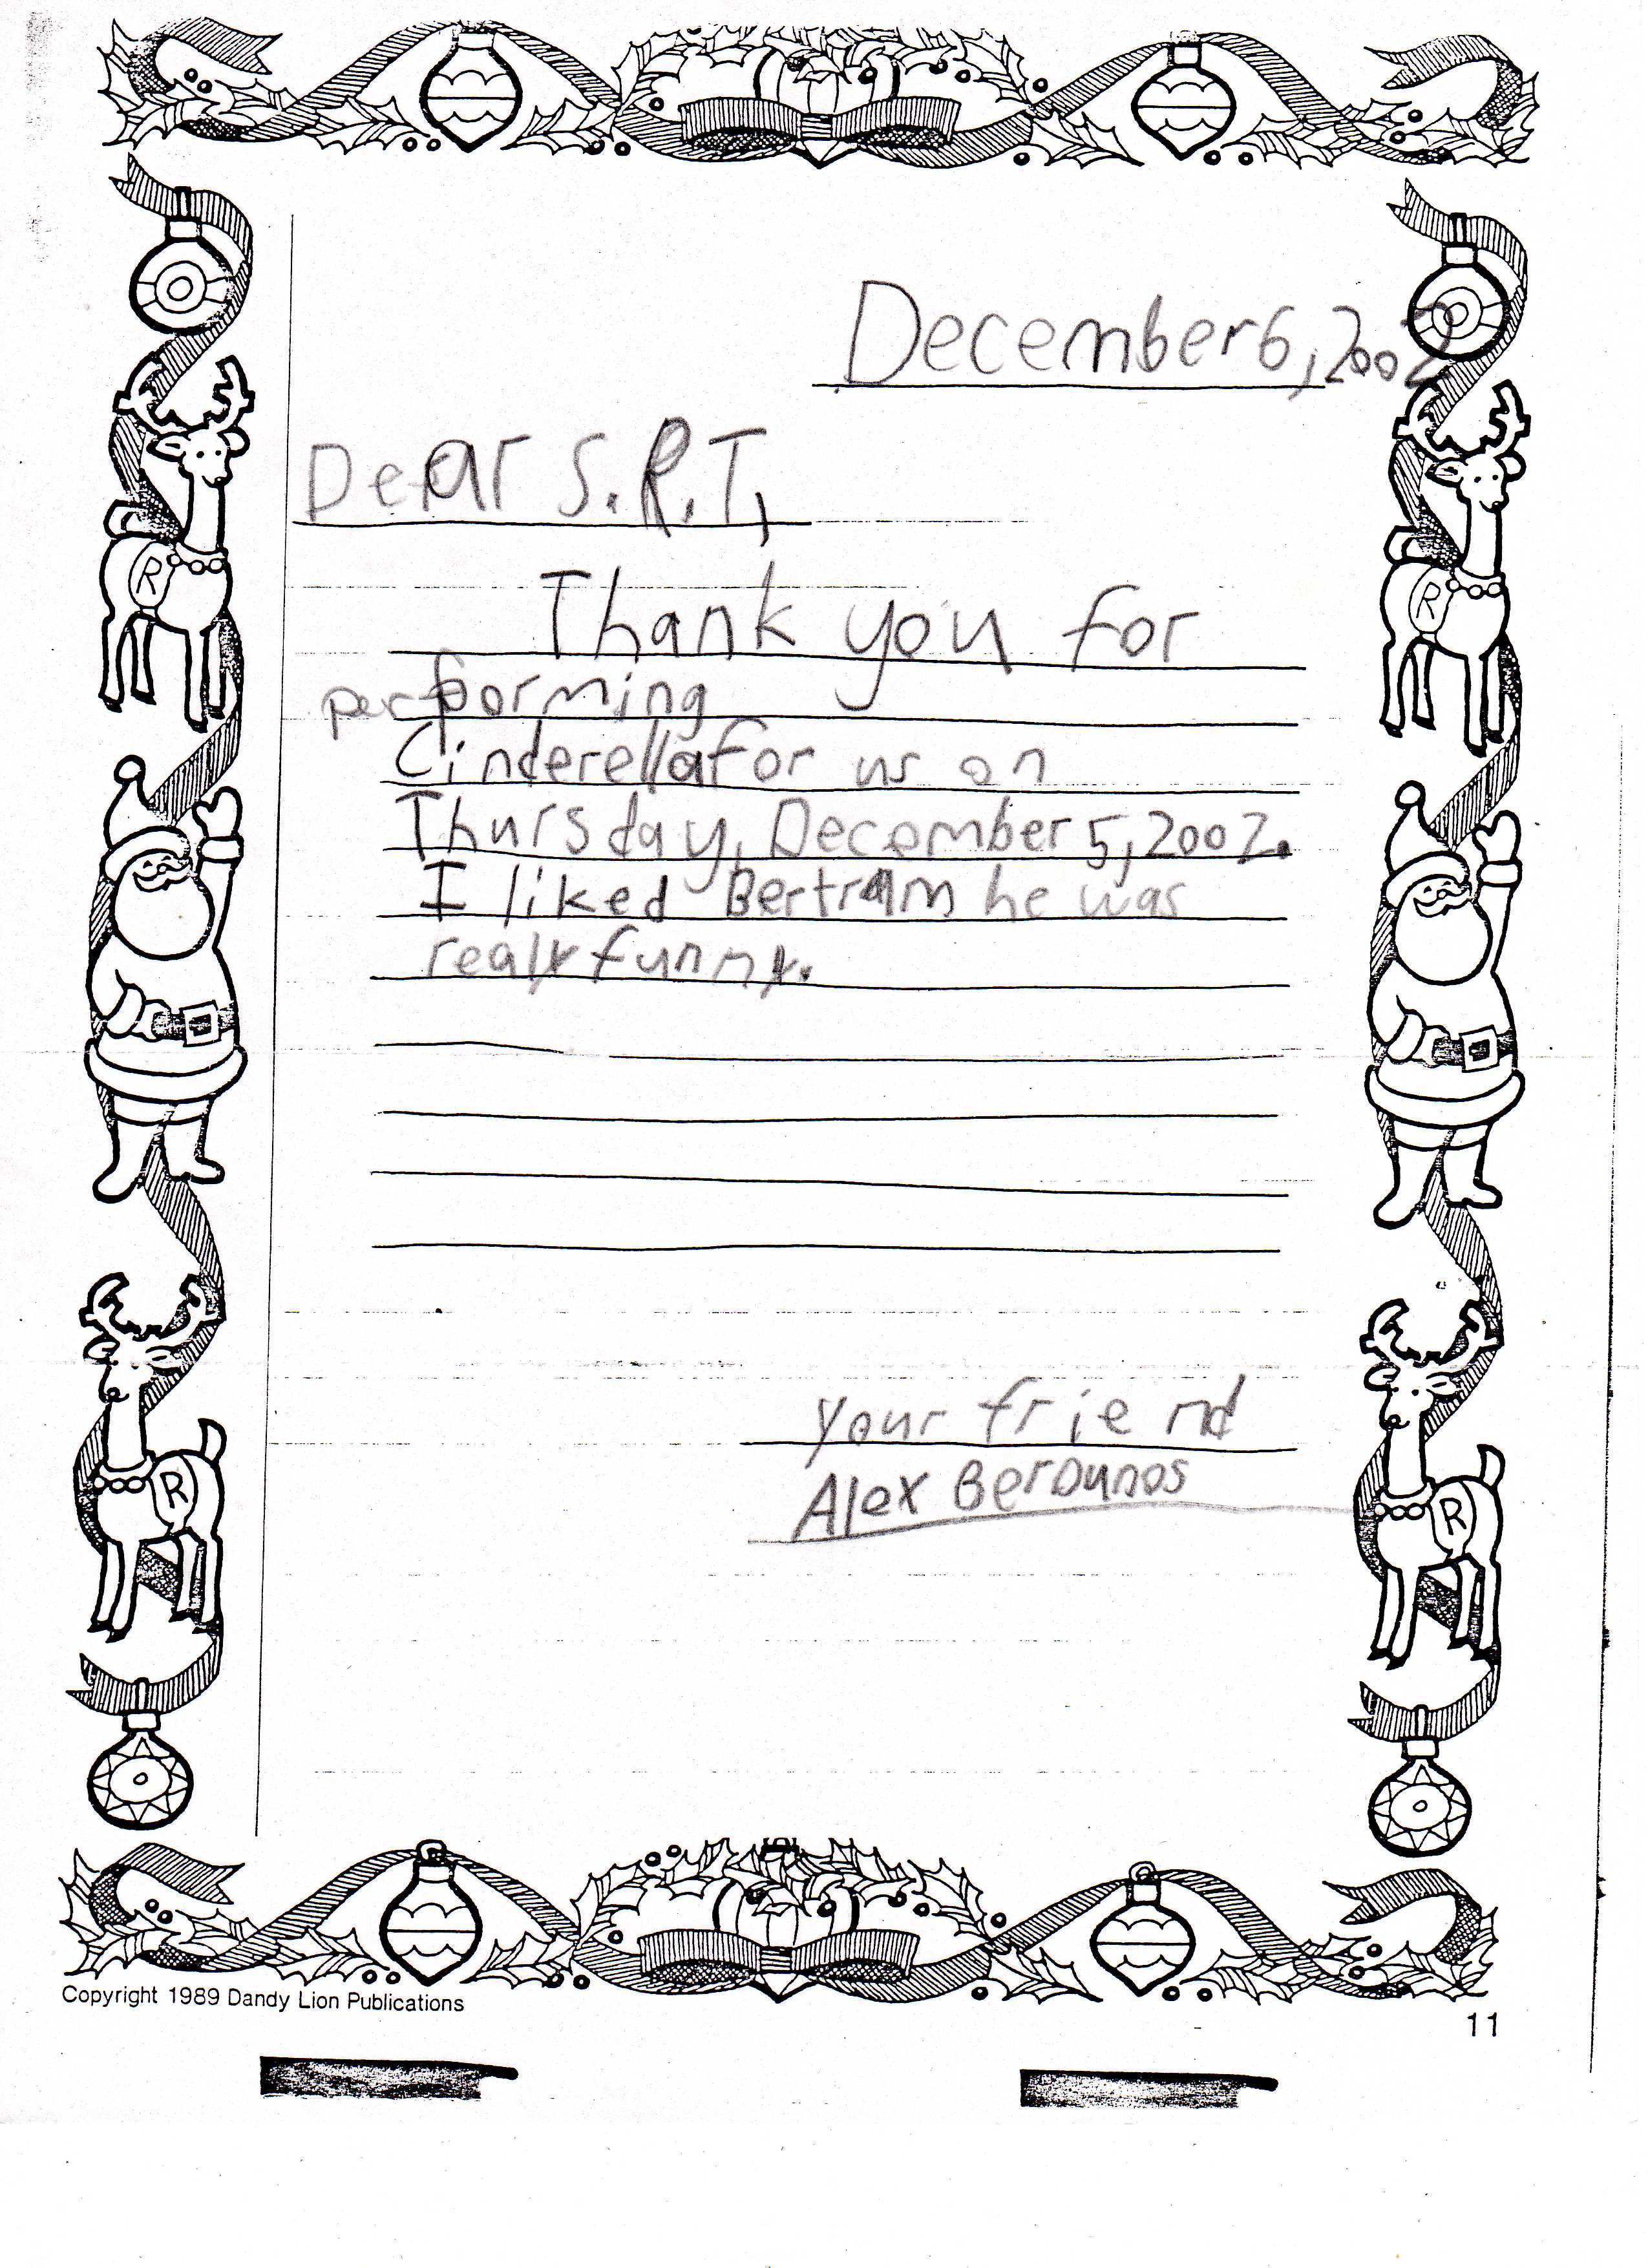 December 6, 2002
Dear S.R.T,
Thank you for
performing
Cinderella for us on
Thursday, December 5, 2002.
I liked Bertram he was
realy funny.
your friend
Alex Berounos
R
R
R
R
Copyright 1989 Dandy Lion Publications
11